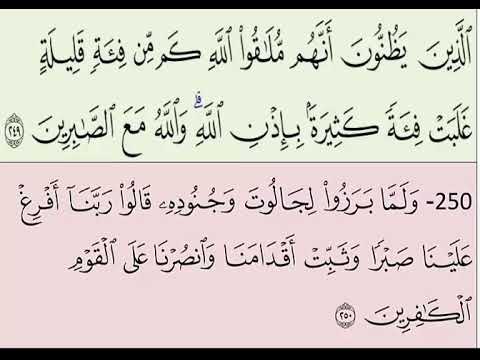 ٱلَّذِينَ يَظُنُّونَ أَنَّهُم مُّلَـٰقُوا۟ ٱللَّهِ كَم مِّن فِئَةٍ قَلِيلَةٍ
غَلَبَتْ فِئَةً كَثِيرَةًۢ بِإِذْنِ ٱللَّهِ ۗ وَٱللَّهُ مَعَ ٱلصَّـٰبِرِينَ ٢٤٩
250- وَلَمَّا بَرَزُوا۟ لِجَالُوتَ وَجُنُودِهِۦ قَالُوا۟ رَبَّنَآ أَفْرِغْ
عَلَيْنَا صَبْرًا وَثَبِّتْ أَقْدَامَنَا وَٱنصُرْنَا عَلَى ٱلْقَوْمِ
ٱلْكَـٰفِرِينَ ٢٥٠